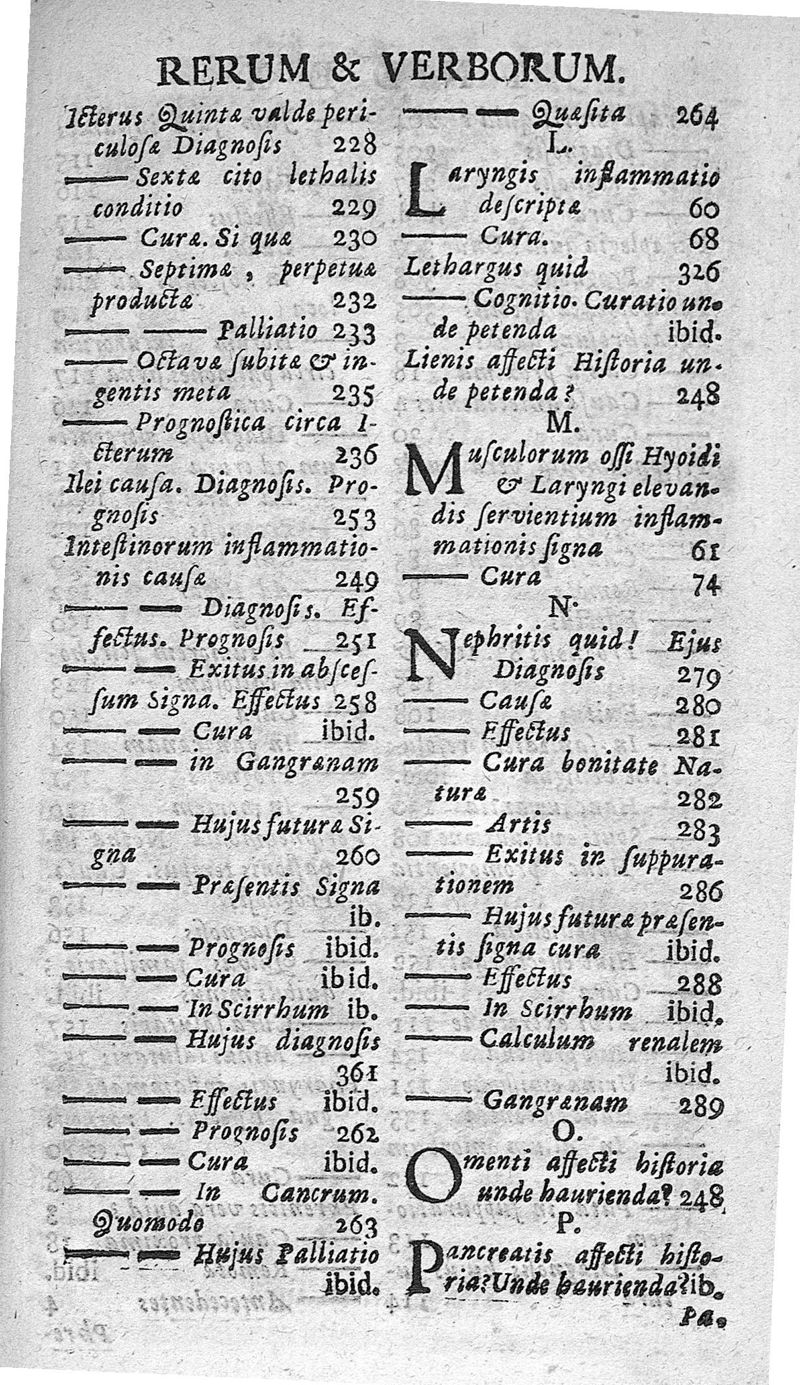 RERUM & VERBORUM.
Icterus Quintæ valde peri-
culosæ Diagnosis 228
—— Sextæ cito lethalis
conditio 229
—— Curæ. Si quæ 230
—— Septimæ, perpetuæ
productæ 232
—— —— Palliatio 233
—— Octavæ subitæ & in-
gentis meta 235
—— Prognostica circa I-
cterum 236
Ilei causa. Diagnosis. Pro-
gnosis 253
Intestinorum inflammatio-
nis causæ 249
—— — Diagnosis. Ef-
fectus. Prognosis 251
—— — Exitus in absces-
sum Signa. Effectus 258
—— — Cura ibid.
—— — in Gangrænam
259
—— — Hujus futuræ Si-
gna 260
—— — Præsentis Signa
ib.
—— — Prognosis ibid.
—— — Cura ibid.
—— — In Scirrhum ib.
—— — Hujus diagnosis
361
—— — Effectus ibid.
—— — Prognosis 262
—— — Cura ibid.
—— — In Cancrum.
Quomodo 263
—— — Hujus Palliatio
ibid.
—— — Quæsita 264
L.
Laryngis inflammatio
descriptæ 60
—— Cura. 68
Lethargus quid 326
—— Cognitio. Curatio un-
de petenda ibid.
Lienis affecti Historia un-
de petenda? 248
M.
Musculorum ossi Hyoidi
& Laryngi elevan-
dis servientium inflam-
mationis signa 61
—— Cura 74
N.
Nephritis quid! Ejus
Diagnosis 279
—— Causæ 280
—— Effectus 281
—— Cura bonitate Na-
turæ 282
—— Artis 283
—— Exitus in suppura-
tionem 286
—— Hujus futuræ præsen-
tis signa cura ibid.
—— Effectus 288
—— In Scirrhum ibid.
—— Calculum renalem
ibid.
—— Gangrænam 289
O.
Omenti affecti historia
unde haurienda? 248
P.
Pancreatis affecti histo-
ria? Unde haurienda? ib.
Pa-